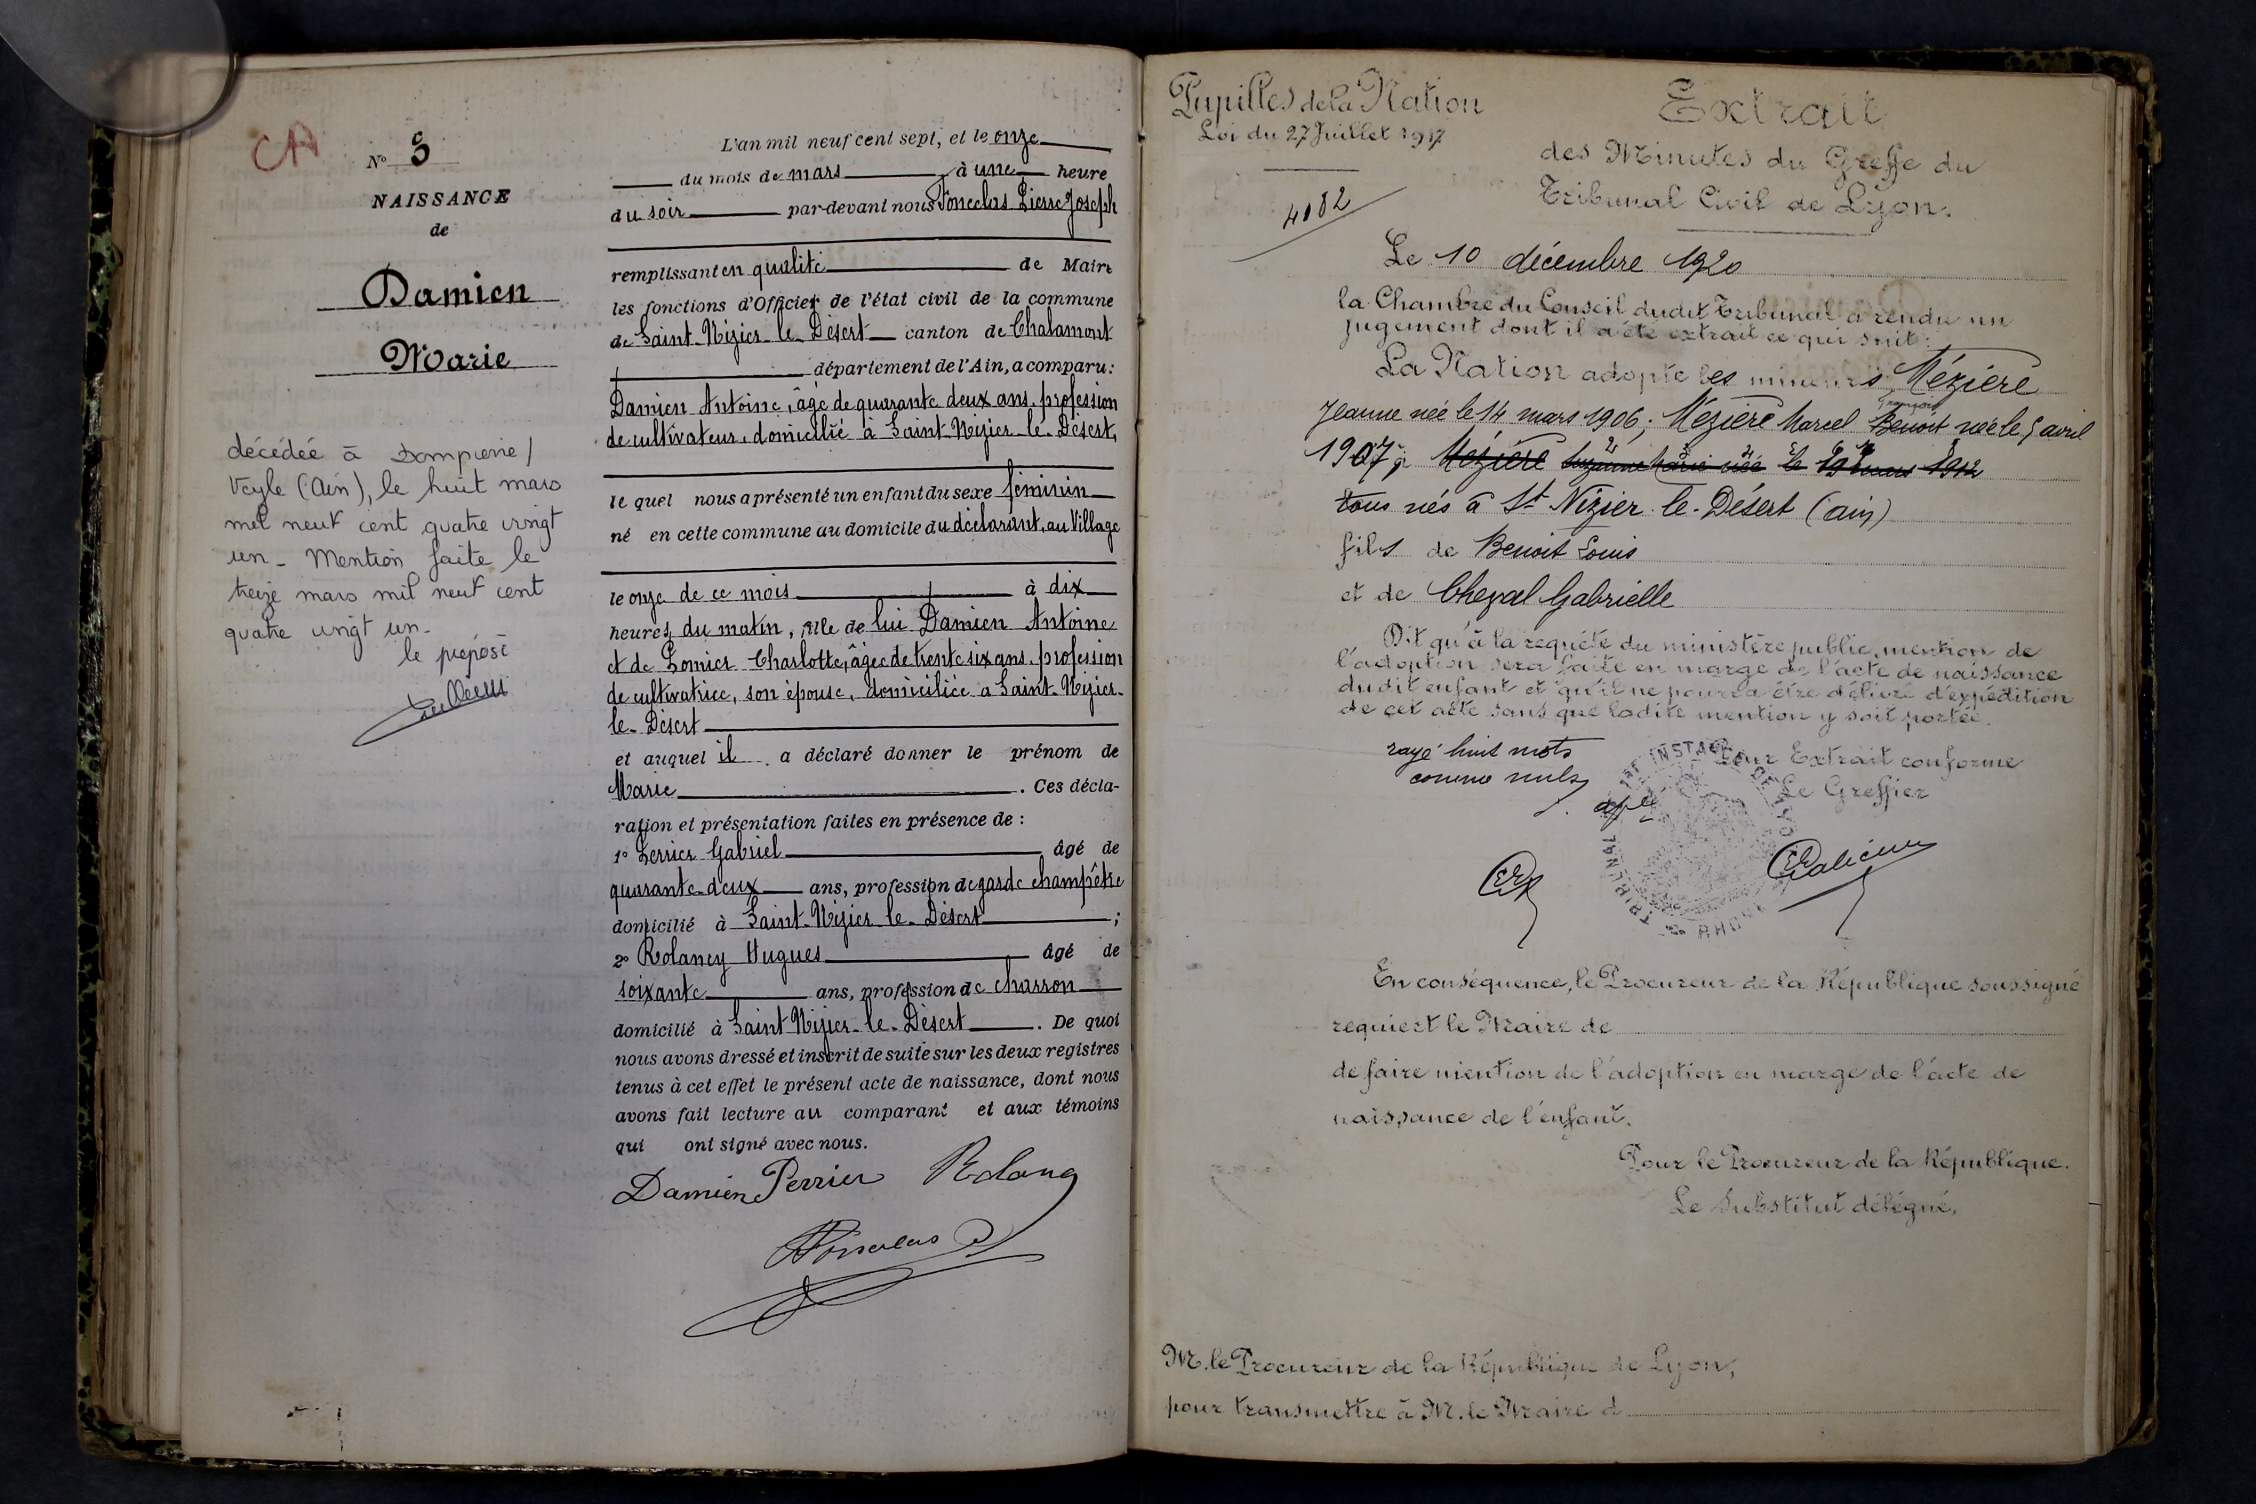 CA
N° 3
NAISSANCE
de
Damien
Marie
décédée à Dompierre /
Veyle (Ain), le huit mars
mil neuf cent quatre vingt
un - Mention faite le
treize mars mil neuf cent
quatre vingt un -
le préposé
L'an mil neuf cent sept, et le onze
du mois de mars à une heure
du soir par-devant nous Ponceblas Pierre Joseph
remplissant en qualité de Maire
les fonctions d'Officier de l'état civil de la commune
de Saint-Nizier-le-Désert canton de Chalamont
département de l'Ain, a comparu:
Damien Antoine, âgé de quarante deux ans, profession
de cultivateur, domicilié à Saint-Nizier-le-Désert,
le quel nous a présenté un enfant du sexe féminin
né en cette commune au domicile du déclarant, au Village
le onze de ce mois à dix
heures du matin, fille de lui Damien Antoine
et de Charlotte, âgée de trente six ans, profession
de cultivatrice, son épouse, domiciliée à Saint-Nizier-
le-Désert
et auquel il a déclaré donner le prénom de
Marie. Ces décla-
ration et présentation faites en présence de :
1° Perrier Gabriel âgé de
quarante-deux ans, profession de garde champêtre
domicilié à Saint-Nizier-le-Désert ;
2° Rolancy Hugues âgé de
soixante ans, profession de charron
domicilié à Saint-Nizier-le-Désert. De quoi
nous avons dressé et inscrit de suite sur les deux registres
tenus à cet effet le présent acte de naissance, dont nous
avons fait lecture au comparant et aux témoins
qui ont signé avec nous.
Damien Perrier
Pupilles de la Nation
Loi du 27 Juillet 1917
4182
Extrait
des Minutes du Greffe du
Tribunal Civil de Lyon.
Le 10 décembre 1920
la Chambre du Conseil dudit Tribunal a rendu un
jugement dont il a été extrait ce qui suit:
La Nation adopte les mineurs Mézière
Jeanne née le 14 mars 1906; Mézière Marcel François Benoit née le 5 avril
1907; Mézière Suzanne Marie née le 19 mars 1912
tous nés à St Nizier-le-Désert (ain)
fils de Benoit Louis
et de Cheval Gabrielle
Dit qu'à la requête du ministère public, mention de
l'adoption sera faite en marge de l'acte de naissance
dudit enfant et qu'il ne pourra être délivré d'expédition
de cet acte sans que ladite mention y soit portée.
rayé huit mots
comme nuls
Pour Extrait conforme
Le Greffier
TRIBUNAL 1ère INSTANCE DE LYON
RHONE
En conséquence, le Procureur de la République soussigné
requiert le Maire de
de faire mention de l'adoption en marge de l'acte de
naissance de l'enfant.
Pour le Procureur de la République.
Le Substitut délégué,
M. le Procureur de la République de Lyon,
pour transmettre à M. le Maire d